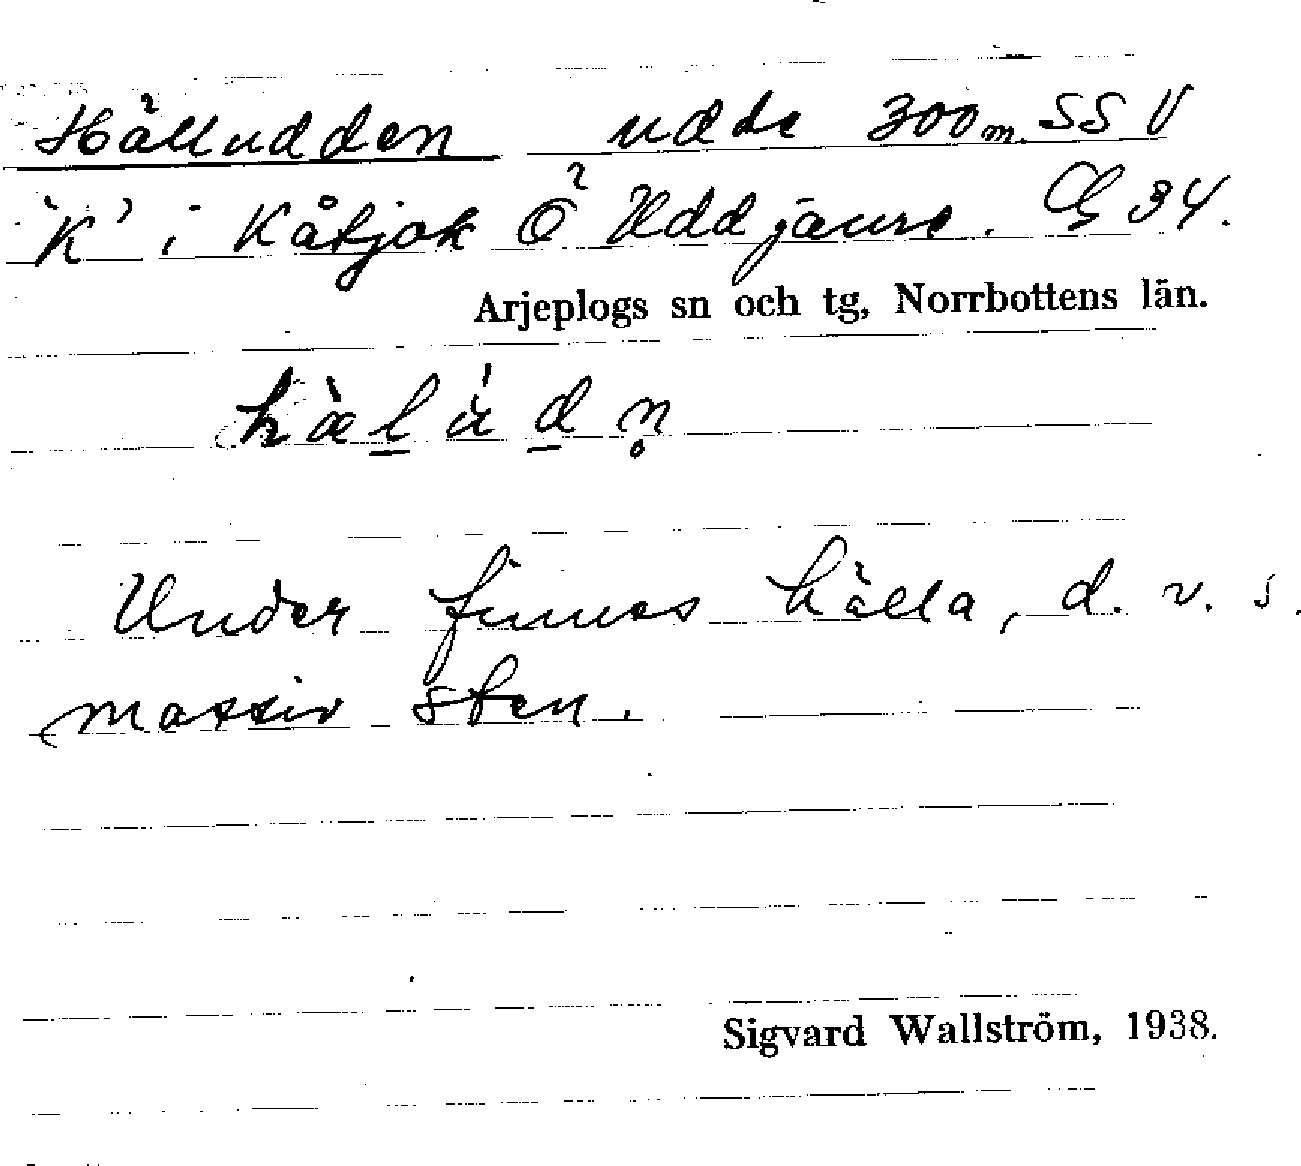 Hälludden udde 300 m. SSV
'K' i Kåtjok Ö Uddjaure. G 34.
Arjeplogs sn och tg, Norrbottens län.
hæ̀lúdn̥
Under finnes hälla, d. v. s.
massiv sten.
Sigvard Wallström, 1938.